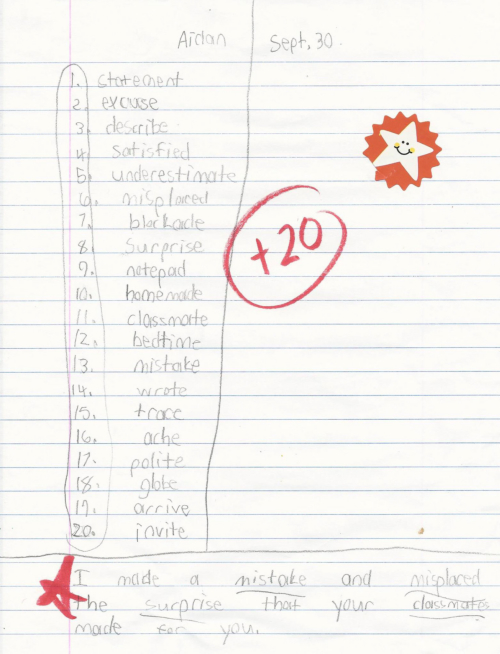 Aidan Sept. 30
1. statement
2. excuse
3. describe
4. satisfied
5. underestimate
6. misplaced
7. blockade
8. surprise
9. notepad
10. homemade
11. classmate
12. bedtime
13. mistake
14. wrote
15. trace
16. ache
17. polite
18. globe
19. arrive
20. invite
+20
I made a mistake and misplaced
the surprise that your classmates
made for you.